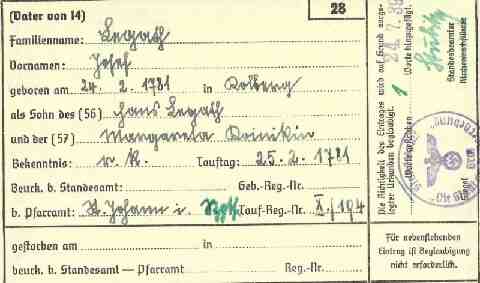 (Vater von 14) 28
Familienname: Legath
Vornamen: Josef
geboren am 24. 2. 1781 in Kolberg
als Sohn des (56) Hans Legath
und der (57) Margareta
Bekenntnis: r. k. Tauftag: 25. 2. 1781
Beurk. b. Standesamt: Geb.-Reg.-Nr.
b. Pfarramt: St. Johann i. Tauf-Reg.-Nr. II/194
gestorben am in
beurk. b. Standesamt — Pfarramt Reg.-Nr.
Die Richtigkeit des Eintrages wird auf Grund vorge-
legter Urkunden beglaubigt.
Worte hinzugefügt.
1 Worte gestrichen
24. 7. 39
Standesbeamter
Kirchenbuchführer
Siegel
Für nebenstehenden
Eintrag ist Beglaubigung
nicht erforderlich.